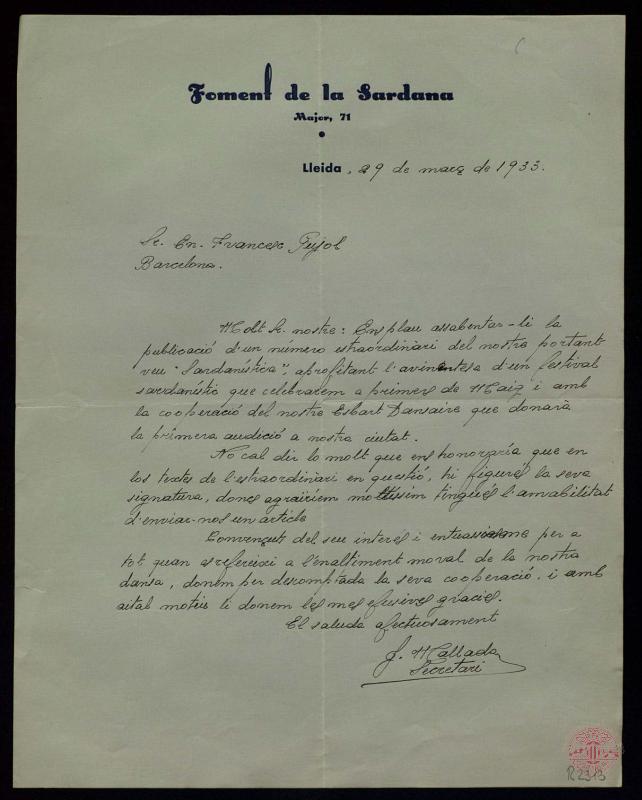 Foment de la Sardana
Major, 71
Lleida, 29 de març de 1933.
Sr. En. Francesc Pujol
Barcelona.
Molt Sr. nostre: Ens plau assabentar-li la
publicació d'un número estraordinàri del nostre portant
veu "Sardanística", aprofitant l'avinentesa d'un festival
sardanístic que celebrarem a primers de Maig i amb
la cooperació del nostre Esbart Dansaire que donarà
la primera audició a nostra ciutat.
No cal dir lo molt que ens honoraría que en
los textes de l'estraordinàri en questió, hi figurés la seva
signatura, doncs agrairiem moltissim tingués l'amabilitat
d'enviar-nos un article
Convençuts del seu interes i entusiasme per a
tot quan es refereixi a l'enaltiment moral de la nostra
dansa, donem per descomptada la seva cooperació, i amb
aital motiu li donem les mes efusives gràcies.
El saluda afectuosament
J. Mallada
Secretari
R2313